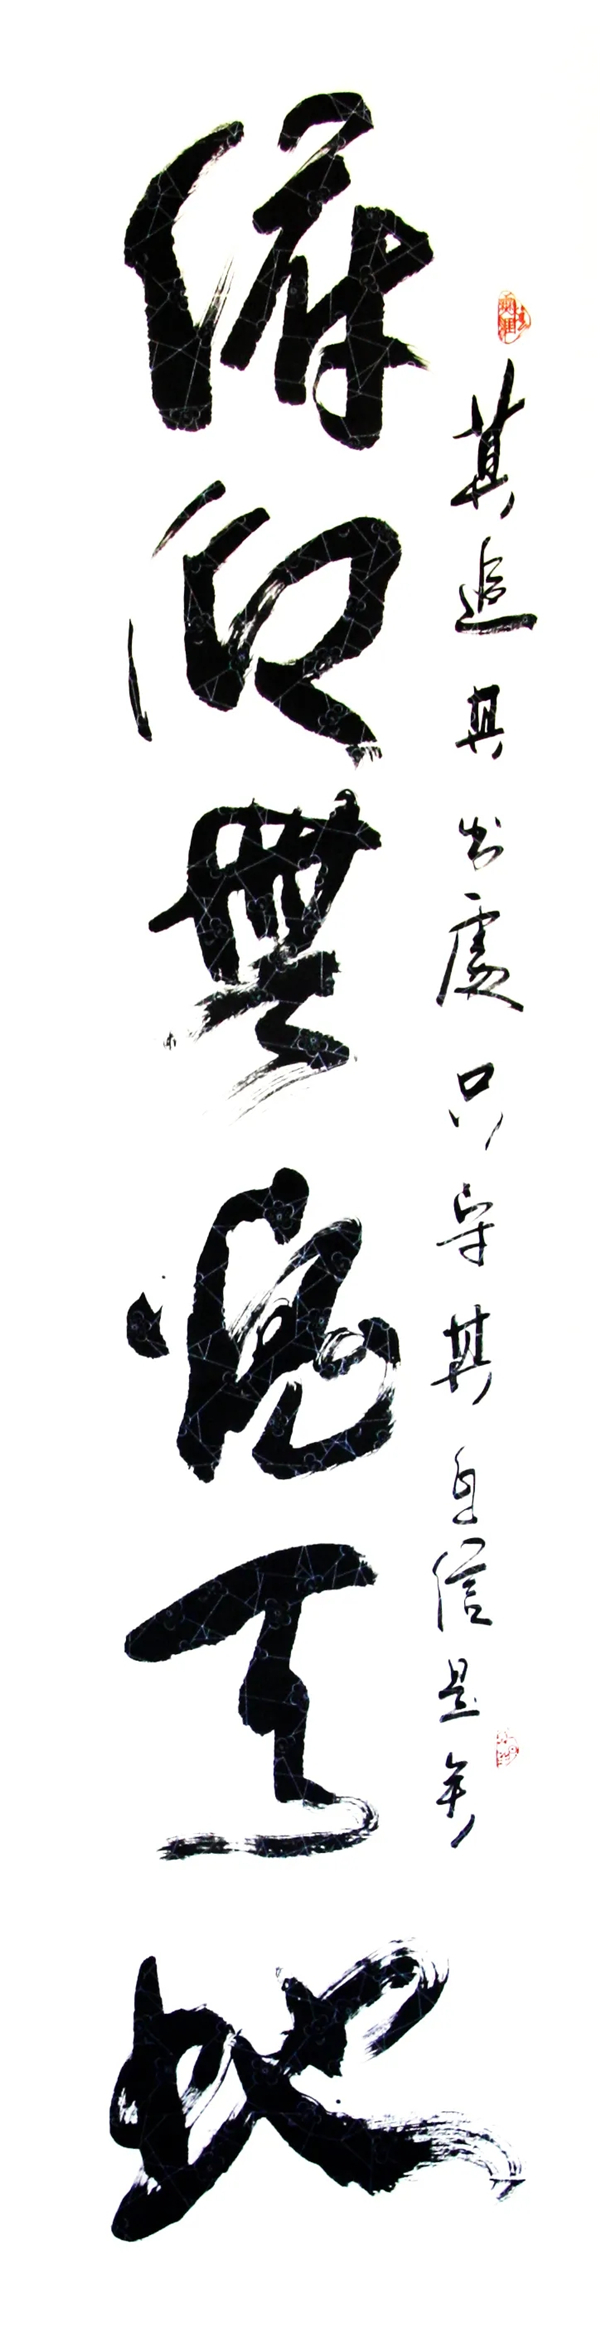 莫追其出處只守其自信是矣
俯仰無愧天地